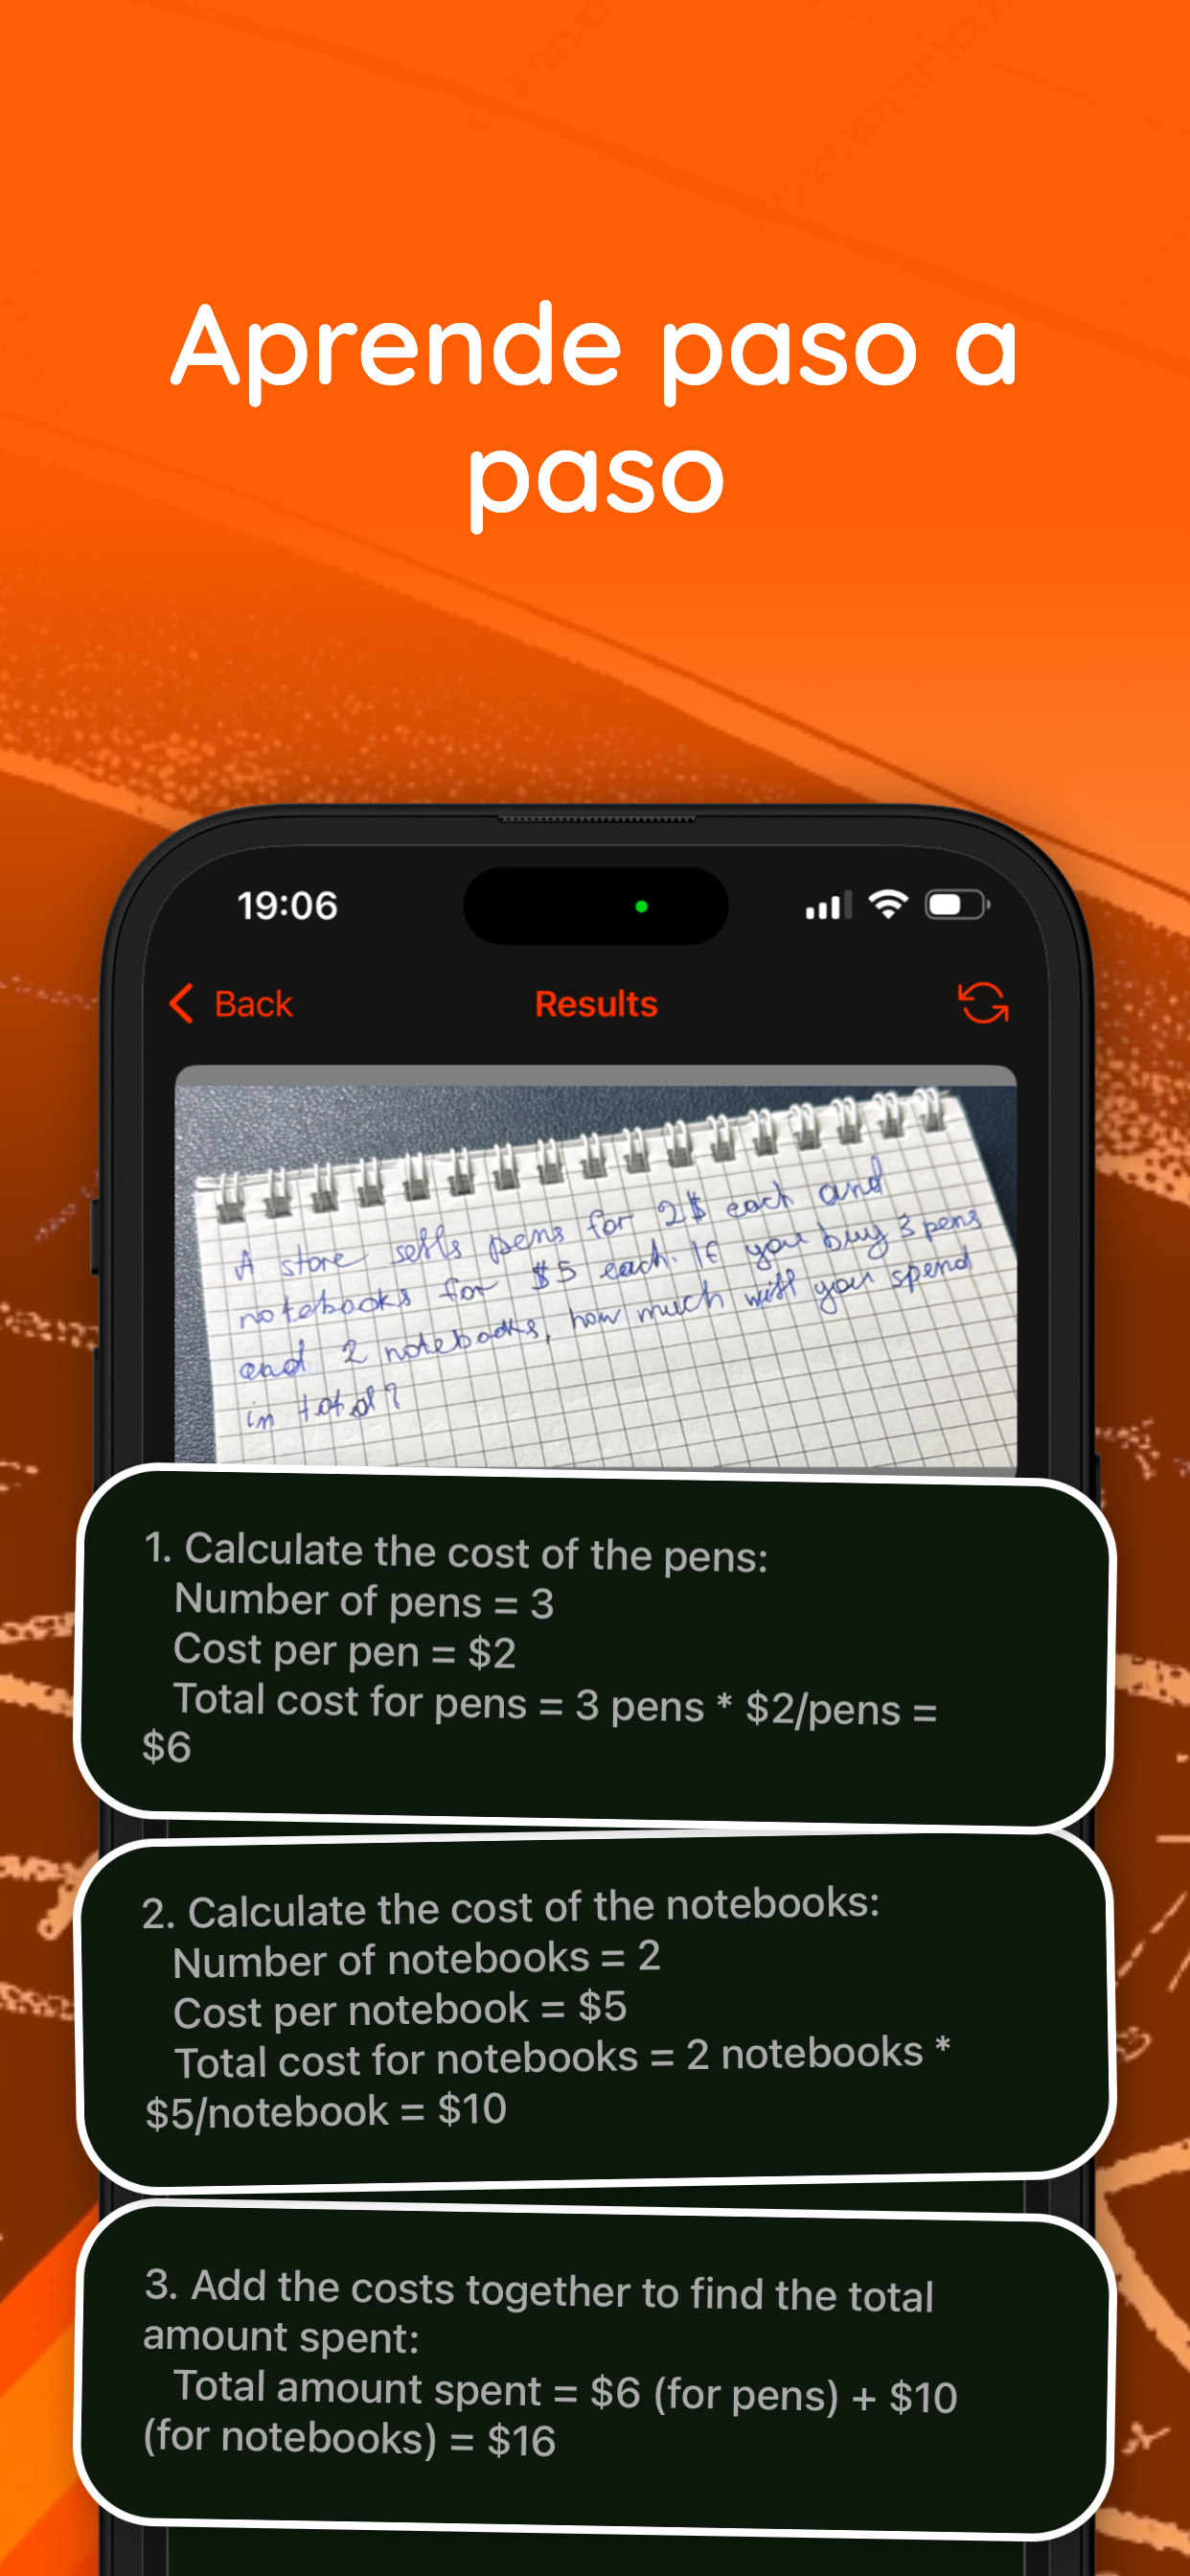 Aprende paso a
paso
19:06
Back
Results
A store sells pens for 2$ each and
notebooks for $5 each. If you buy 3 pens
and 2 notebooks, how much will you spend
in total?
1. Calculate the cost of the pens:
Number of pens = 3
Cost per pen = $2
Total cost for pens = 3 pens * $2/pens =
$6
2. Calculate the cost of the notebooks:
Number of notebooks = 2
Cost per notebook = $5
Total cost for notebooks = 2 notebooks *
$5/notebook = $10
3. Add the costs together to find the total
amount spent:
Total amount spent = $6 (for pens) + $10
(for notebooks) = $16